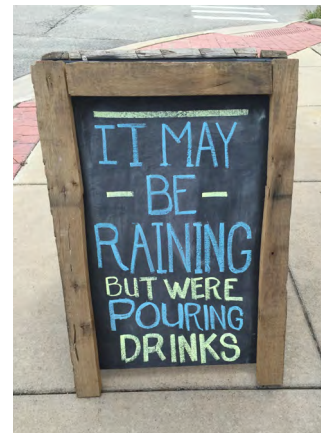 IT MAY
- BE -
RAINING
BUT WERE
POURING
DRINKS